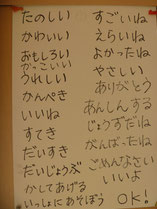 たのしい
かわいい
おもしろい
かっこいい
うれしい
かんぺき
いいね
すてき
だいすき
だいじょうぶ
かしてあげる
いっしょにあそぼう
すごいね
えらいね
よかったね
やさしい
ありがとう
あんしんする
じょうずだね
がんばったね
ごめんなさい
いいよ
OK!